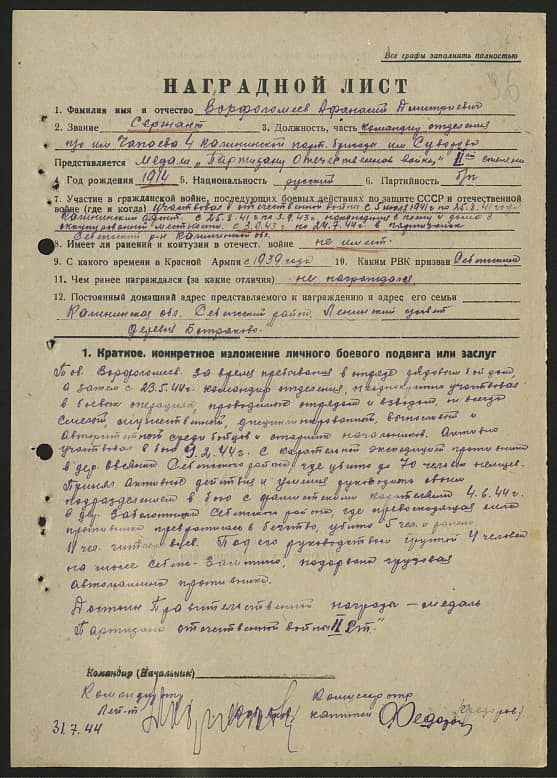 Все графы заполнять полностью
96
НАГРАДНОЙ ЛИСТ
1. Фамилия имя и отчество Ворфоломеев Афанасий Дмитриевич
2. Звание Сержант 3. Должность, часть командир отделения
п/о им Чапаева 4 Калининской парт. бригады им Суворова
Представляется Медали „Партизану Отечественной войны" II ой степени
4. Год рождения 1914 5. Национальность русский 6. Партийность б/п
7. Участие в гражданской войне, последующих боевых действиях по защите СССР и отечественной
войне (где и когда) Участвовал в отечественной войне с 5 июля 1941 г по 25.8.41 года
Калининский фронт. с 25.8.41 г по 3.9.43г. находился в плену и дома в
оккупированной местности. с 3.9.43 г по 29.7.44 г. в партизанах
Себежский р-н Калининской обл.
8. Имеет ли ранения и контузии в отечест. войне не имеет.
9. С какого времени в Красной Армии с 1939 года 10. Каким РВК призван Себежский
11. Чем ранее награждался (за какие отличия) не награждался
12. Постоянный домашний адрес представляемого к награждению и адрес его семьи
Калининская обл. Себежский район, Ленинский с/совет
деревня
1. Краткое, конкретное изложение личного боевого подвига или заслуг
Тов. Ворфоломеев. За время пребывания в отряде рядовым бойцом,
а затем с 23.5.44г. командир отделения, неоднократно участвовал
в боевых операциях, проводимых отрядом и взводом, он всегда
смелый, мужественный, дисциплинированный, выносливый и
авторитетной среди бойцов и старших начальников. Активно
участвовал в бою 9.2.44г. с карательной экспедицией противника
в дер. Себежского района, где убито до 70 человек немцев.
Принял активное действие и умения руководить своим
подразделением в бою с фашистскими карателями 4.6.44г.
в дер. Заболотье Себежского района, где превосходящая сила
противника превратилась в бегство, убито 5 чел. и ранено
11 чел. гитлеровцев. Под его руководством группой 4 человек
на шоссе Себеж-Заситино, подорвана грузовая
автомашина противника.
Достоин Правительственной награды — медаль
„Партизана отечественной войны II й ст."
Командир (Начальник)
Командир отр
Лей-т
Комиссар отр
капитан Федоров (Федоров)
31.7.44